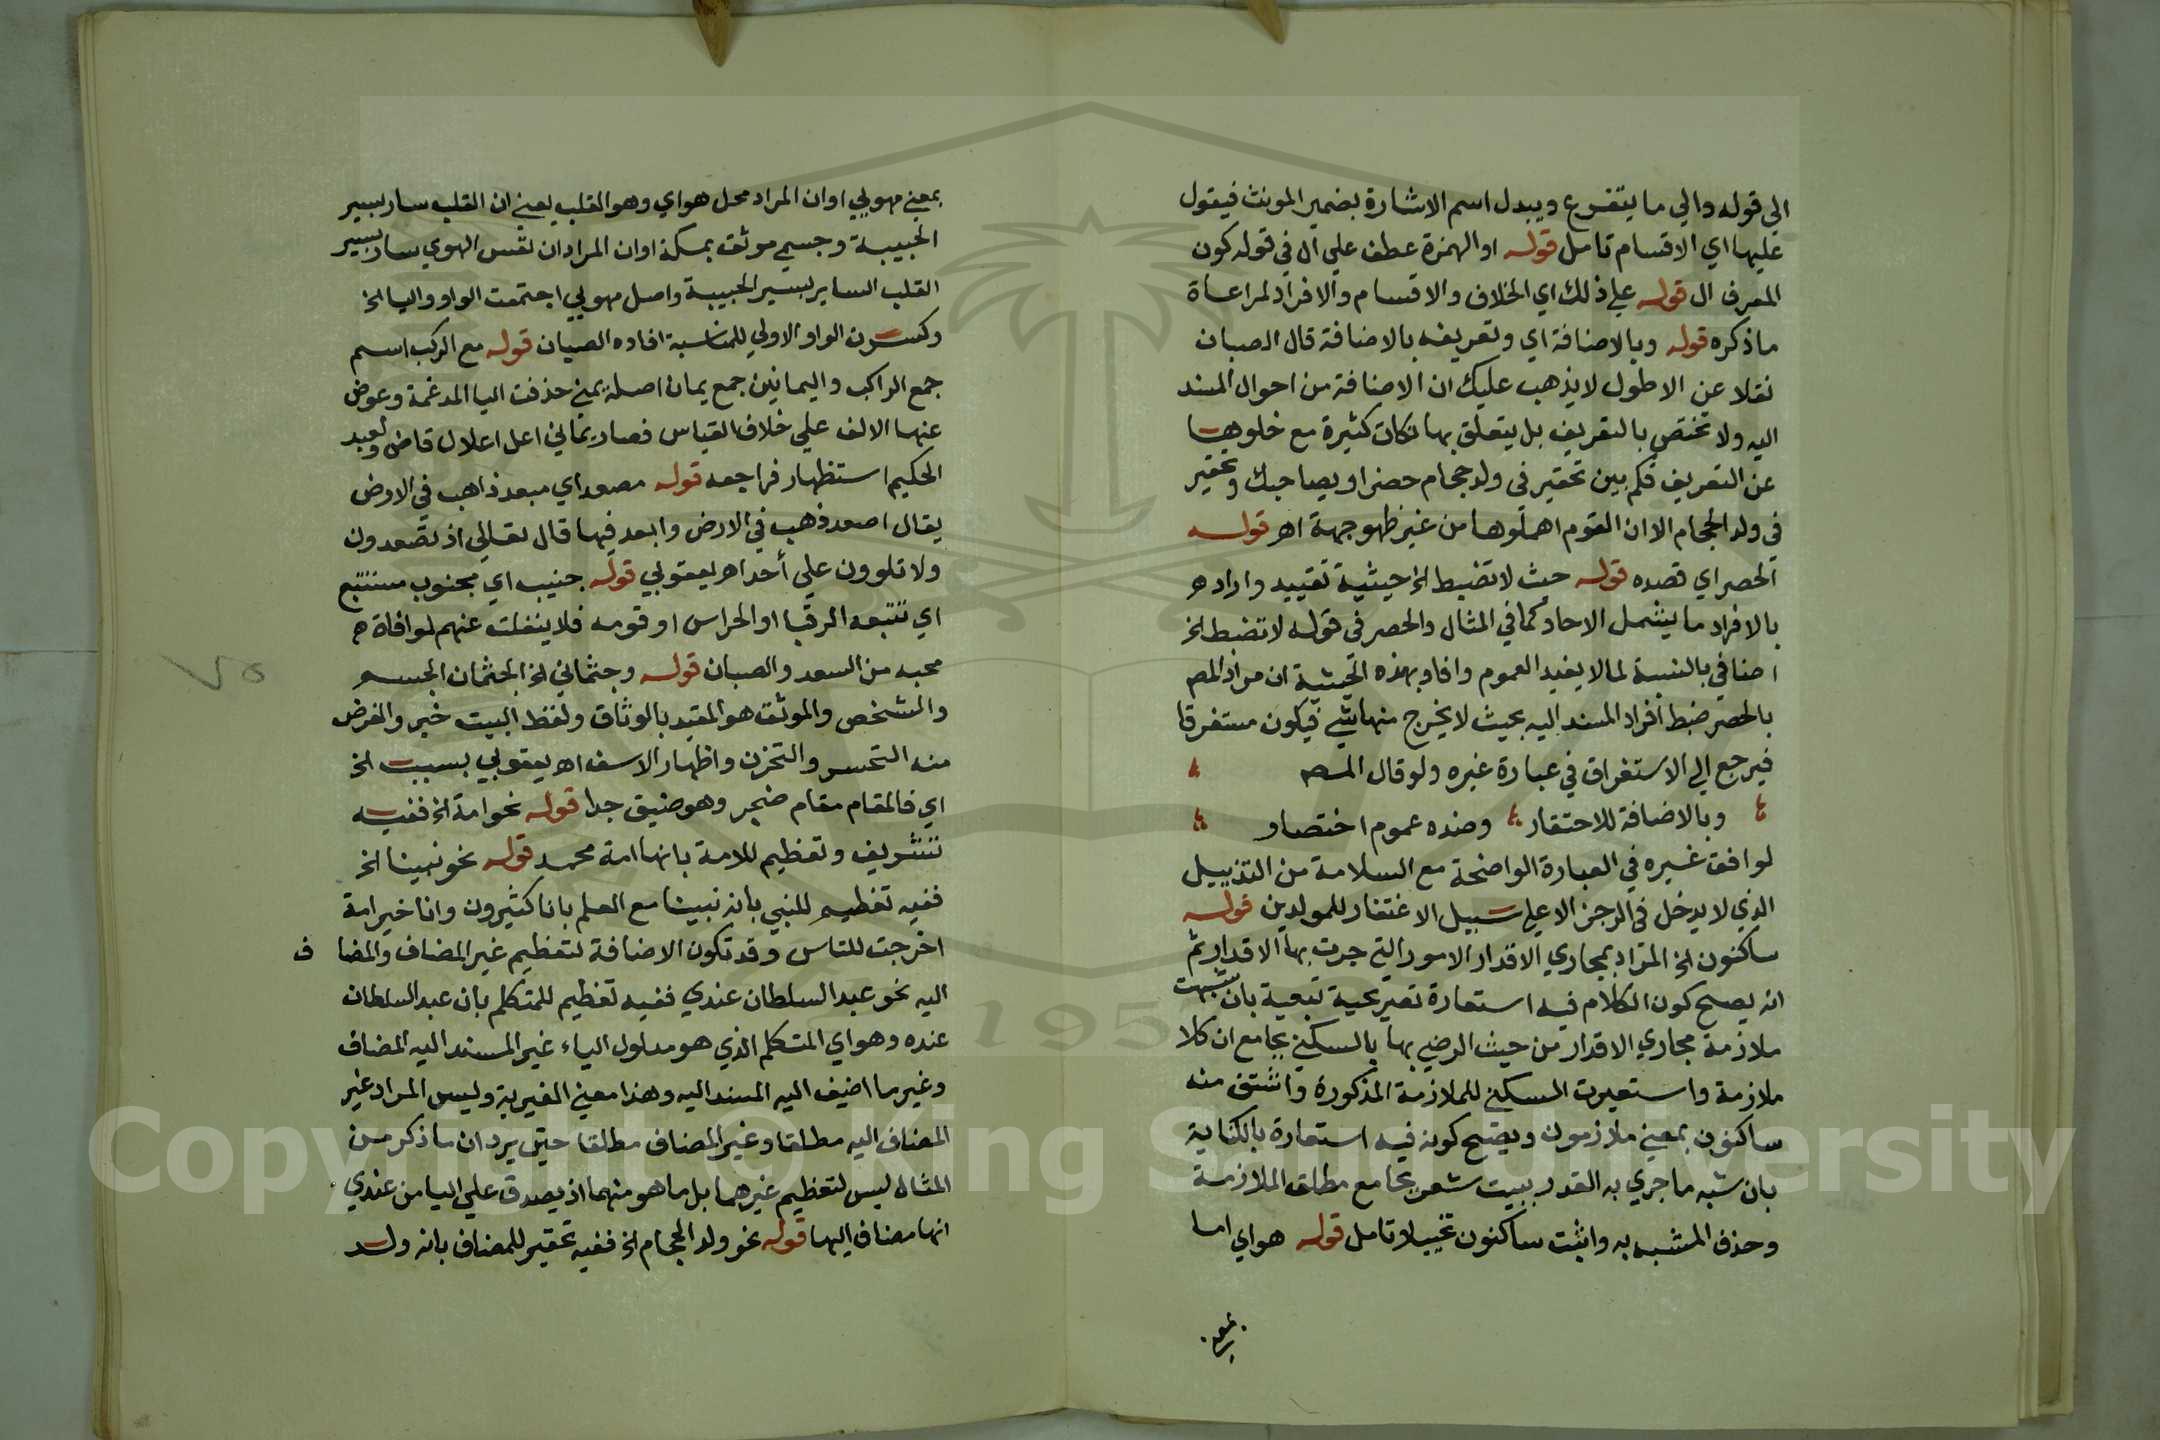 الي قوله والي ما يتفرع ويبدل اسم الاشارة بضمير المونث فيقول
عليها اي الاقسام تامل قوله او الهمزة عطف علي ال في قوله كون
المعرف ال قوله علي ذلك اي الخلاف والاقسام والافراد لمراعاة
ما ذكره قوله وبالاضافة اي وتعريفه بالاضافة قال الصبان
نقلا عن الاطول لا يذهب عليك ان الاضافة من احوال المسند
اليه ولا تختص بالتعريف بل يتعلق بها نكات كثيرة مع خلوها
عن التعريف فكم بين تحقير في ولد حجام حضر او يصاحبك وتحقير
في ولد الحجام الا ان القوم اهملوها من غير ظهور جهة اهر قوله
الحصر اي قصده قوله حث لا تضبط الخ حيثية تقييد واراده
بالافراد ما يشمل الاحاد كما في المثال والحصر في قوله لا تضبط الخ
اضافي بالنسبة لما لا يفيد العموم وافاد بهذه الحيثية ان مراد المص
بالحصر ضبط أفراد المسند اليه بحيث لا يخرج منها شي فيكون مستغرقا
فيرجع الي الاستغراق في عبارة غيره ولو قال المص
وبالاضافة للاحتقار وضده عموم اختصار
لوافق غيره في العبارة الواضحة مع السلامة من التذييل
الذي لا يدخل في الرجز الا علي سبيل الاغتفار للمولدين قوله
ساكنون الخ المراد بمجاري الاقدار الامور التي جرت بها الاقدار ثم
انه يصح كون الكلام فيه استعارة تصريحية تبعية بان شبهت
ملازمة مجاري الاقدار من حيث الرضي بها بالسكني بجامع ان كلا
ملازمة واستعيرت السكني للملازمة المذكورة واشتق منه
ساكنون بمعني ملازمون ويصح كونه فيه استعارة بالكناية
بان شبه ما جري به القدر ببيت شعر بجامع مطلق الملازمة
وحذف المشبه به واثبت ساكنون تخييلا وتامل قوله هواي اما
بمعني
بمعني مهويي او ان المراد محل هواي وهو القلب يعني ان القلب سار بسير
الحبيبة وجسمي موثق بمكة او ان المراد ان نفس الهوي سار بسير
القلب الساير بسير الحبيبة واصل مهويي اجتمعت الواو واليا الخ
وكسرت الواو الاولي للمناسبة افاده الصبان قوله مع الركب اسم
جمع الراكب واليمانين جمع يمان اصله يمني حذفت اليا المدغمة وعوض
عنها الالف علي خلاف القياس فصار يماني اعل اعلال قاض ولعبد
الحكيم استظهار فراجعه قوله مصعد اي مبعد ذاهب في الارض
يقال اصعد ذهب في الارض وابعد فيها قال تعالي اذ تصعدون
ولا تلوون علي أحد اهر يعقوبي قوله جنيب اي مجنوب مستتبع
اي تتبعه الرقبا او الحراس او قومه فلا ينفلت عنهم لموافاة
محبه من السعد والصبان قوله وجثماني الخ الجثمان الجسم
والشخص والموثق هو المقيد بالوثاق ولفظ البيت خبر والغرض
منه التحسر والتحزن واظهار الاسف اهر يعقوبي بسبب الخ
اي فالمقام مقام ضجر وهو ضيق جدا قوله نحو امة الخ ففيه
تشريف وتعظيم للامة بانها امة محمد قوله نحو نبينا الخ
ففيه تعظيم للنبي بانه نبينا مع العلم بانا كثيرون وانا خير امة
اخرجت للناس وقد تكون الاضافة لتعظيم غير المضاف والمضا ف
اليه نحو عبد السلطان عندي ففيه تعظيم للمتكلم بان عبد السلطان
عنده وهو اي المتكلم الذي هو مدلول الياء غير المسند اليه المضاف
وغير ما اضيف اليه المسند اليه وهذا معني الغيرية وليس المراد غير
المضاف اليه مطلقا وغير المضاف مطلقا حتي يرد ان ما ذكر من
المثال ليس لتعظيم غيرهما بل ما هو منهما اذ يصدق علي اليا من عندي
انها مضاف اليها قوله نحو ولد الحجام الخ ففيه تحقير للمضاف بانه ولد
٧٥
Copyright © King Saud University
195